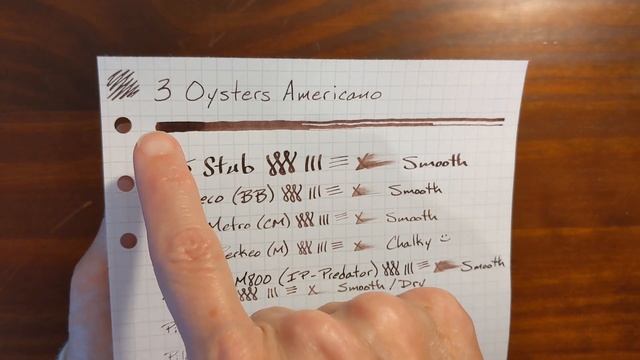 3 Oysters Americano
Stub Smooth
eco (BB) Smooth
Metro (CM) Smooth
erkeo (M) Chalky
M800 (IP-Predator) Smooth
Smooth/Dry